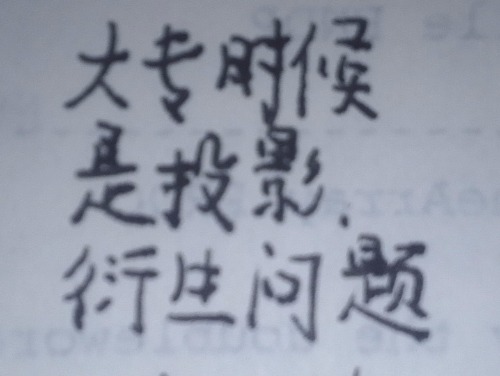 大专时候
是投影.
衍生问题